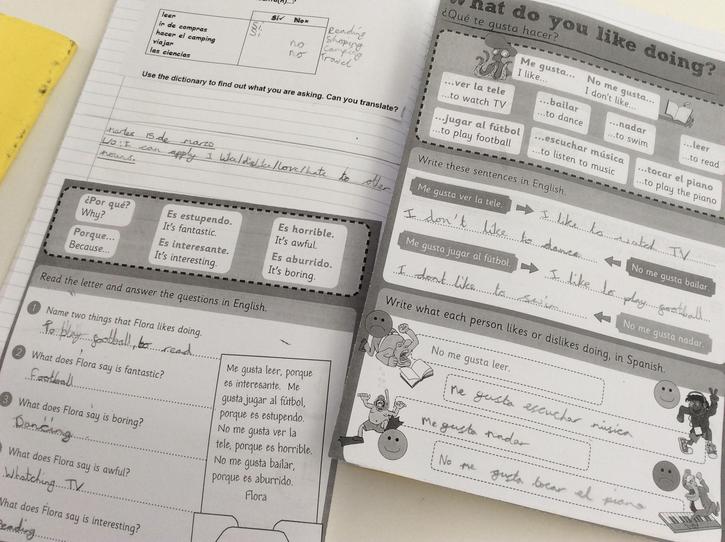 leer
ir de compras
hacer el camping
viajar
las ciencias
Sí✓ No×
Sí
Sí
no
no
Reading
Shoping
Camping
Travel
Use the dictionary to find out what you are asking. Can you translate?
martes 15 de marzo
LO: I can apply I like/dislike/love/hate to other
nouns.
¿Por qué?
Why?
Porque...
Because...
Es estupendo.
It's fantastic.
Es interesante.
It's interesting.
Es horrible.
It's awful.
Es aburrido.
It's boring.
Read the letter and answer the questions in English.
1 Name two things that Flora likes doing.
to play football, to read
2 What does Flora say is fantastic?
Football
3 What does Flora say is boring?
Dancing
What does Flora say is awful?
Whatching TV
What does Flora say is interesting?
Reading
Me gusta leer, porque
es interesante. Me
gusta jugar al fútbol,
porque es estupendo.
No me gusta ver la
tele, porque es horrible.
No me gusta bailar,
porque es aburrido.
Flora
What do you like doing?
¿Qué te gusta hacer?
Me gusta...
I like...
No me gusta...
I don't like...
...ver la tele
...to watch TV
...bailar
...to dance
...nadar
...to swim
...leer
...to read
...jugar al fútbol
...to play football
...escuchar música
...to listen to music
...tocar el piano
...to play the piano
Write these sentences in English.
Me gusta ver la tele.
I like to watch TV
I don't like to dance
No me gusta bailar.
Me gusta jugar al fútbol.
I like to play football
I dont like to swim
No me gusta nadar.
Write what each person likes or dislikes doing, in Spanish.
No me gusta leer.
Me gusta escuchar música
Me gusta nadar
No me gusta tocar el piano